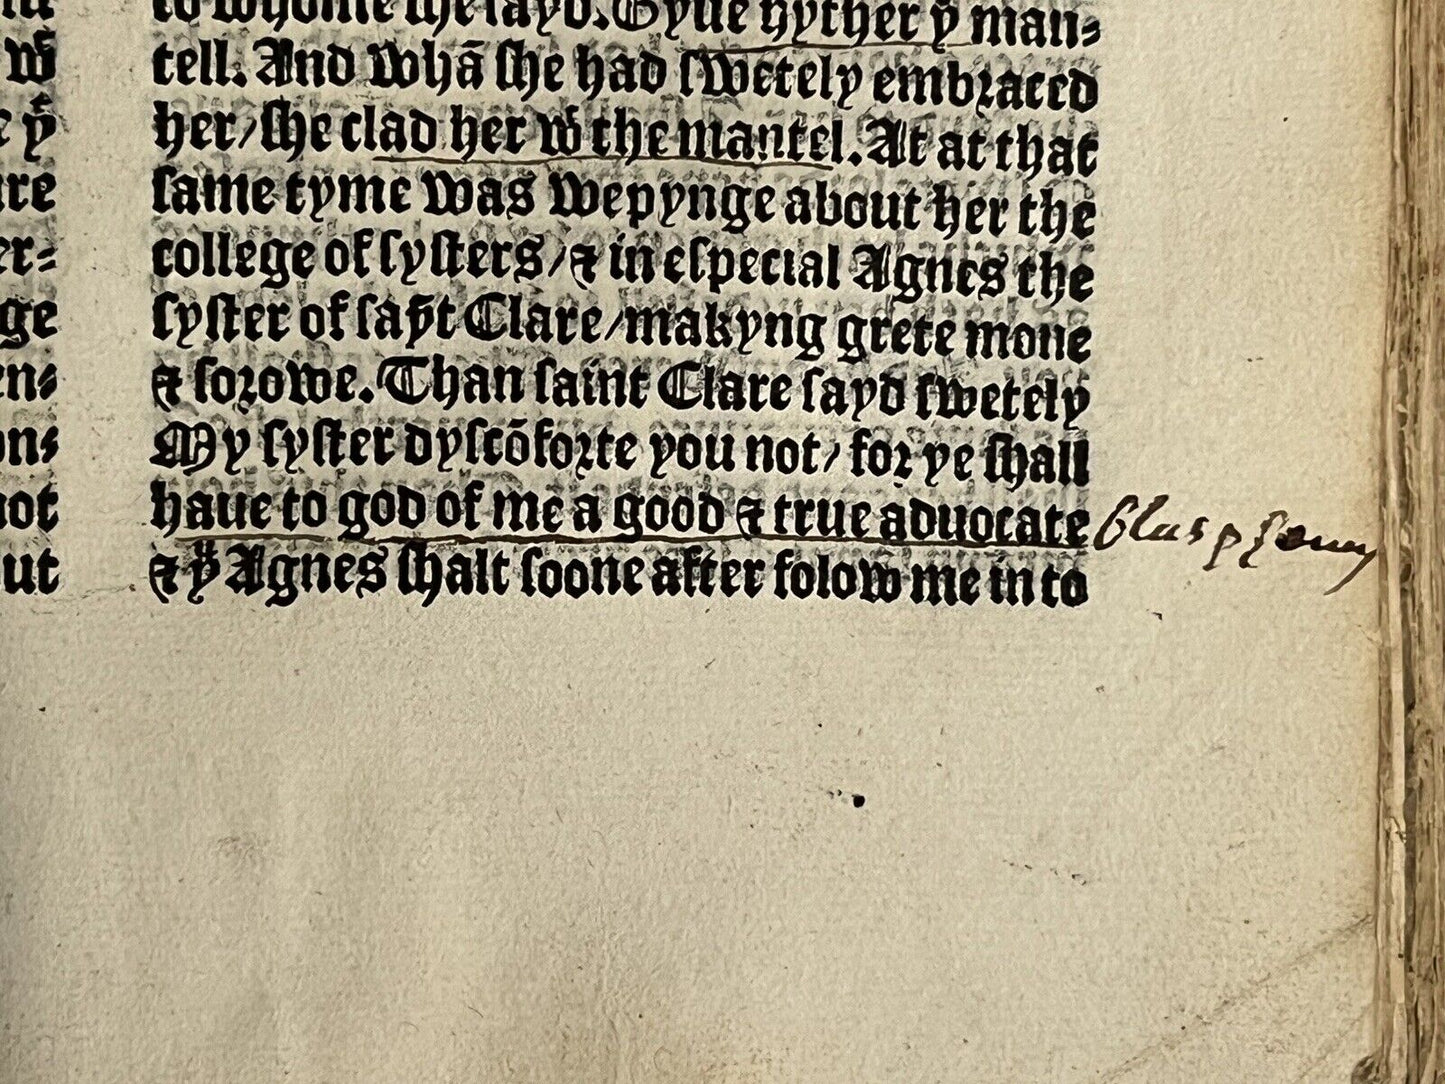 w̄
e yͤ
re
er=
ge
en=
on=
not
ut
to whome she sayd. Gyue hyther yͤ man=
tell. And whā she had swetely embraced
her/she clad her wͭ the mantel. At at that
same tyme was wepynge about her the
college of systers/& in especial Agnes the
syster of saȳt Clare/makyng grete mone
& sorowe. Than saint Clare sayd swetely
My syster dyscōforte you not/ for ye shall
haue to god of me a good & true aduocate
& yͧ Agnes shalt soone after folow me in to
blasphemy